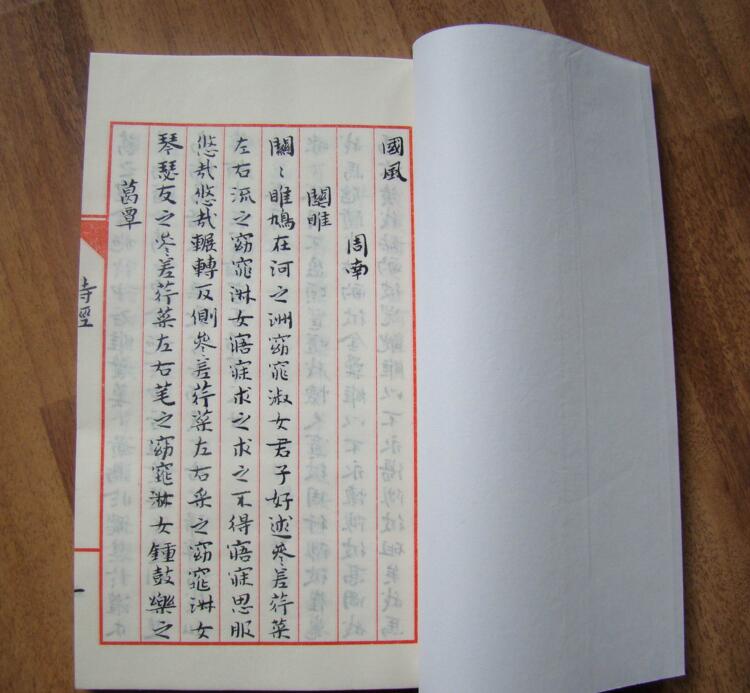 國風
周南
關雎
關〻雎鳩在河之洲窈窕淑女君子好逑參差荇菜
左右流之窈窕淋女寤寐求之求之不得寤寐思服
悠哉悠哉輾轉反側參差荇菜左右采之窈窕淋女
琴瑟友之參差荇菜左右芼之窈窕淋女鍾鼓樂之
葛覃
詩經
一